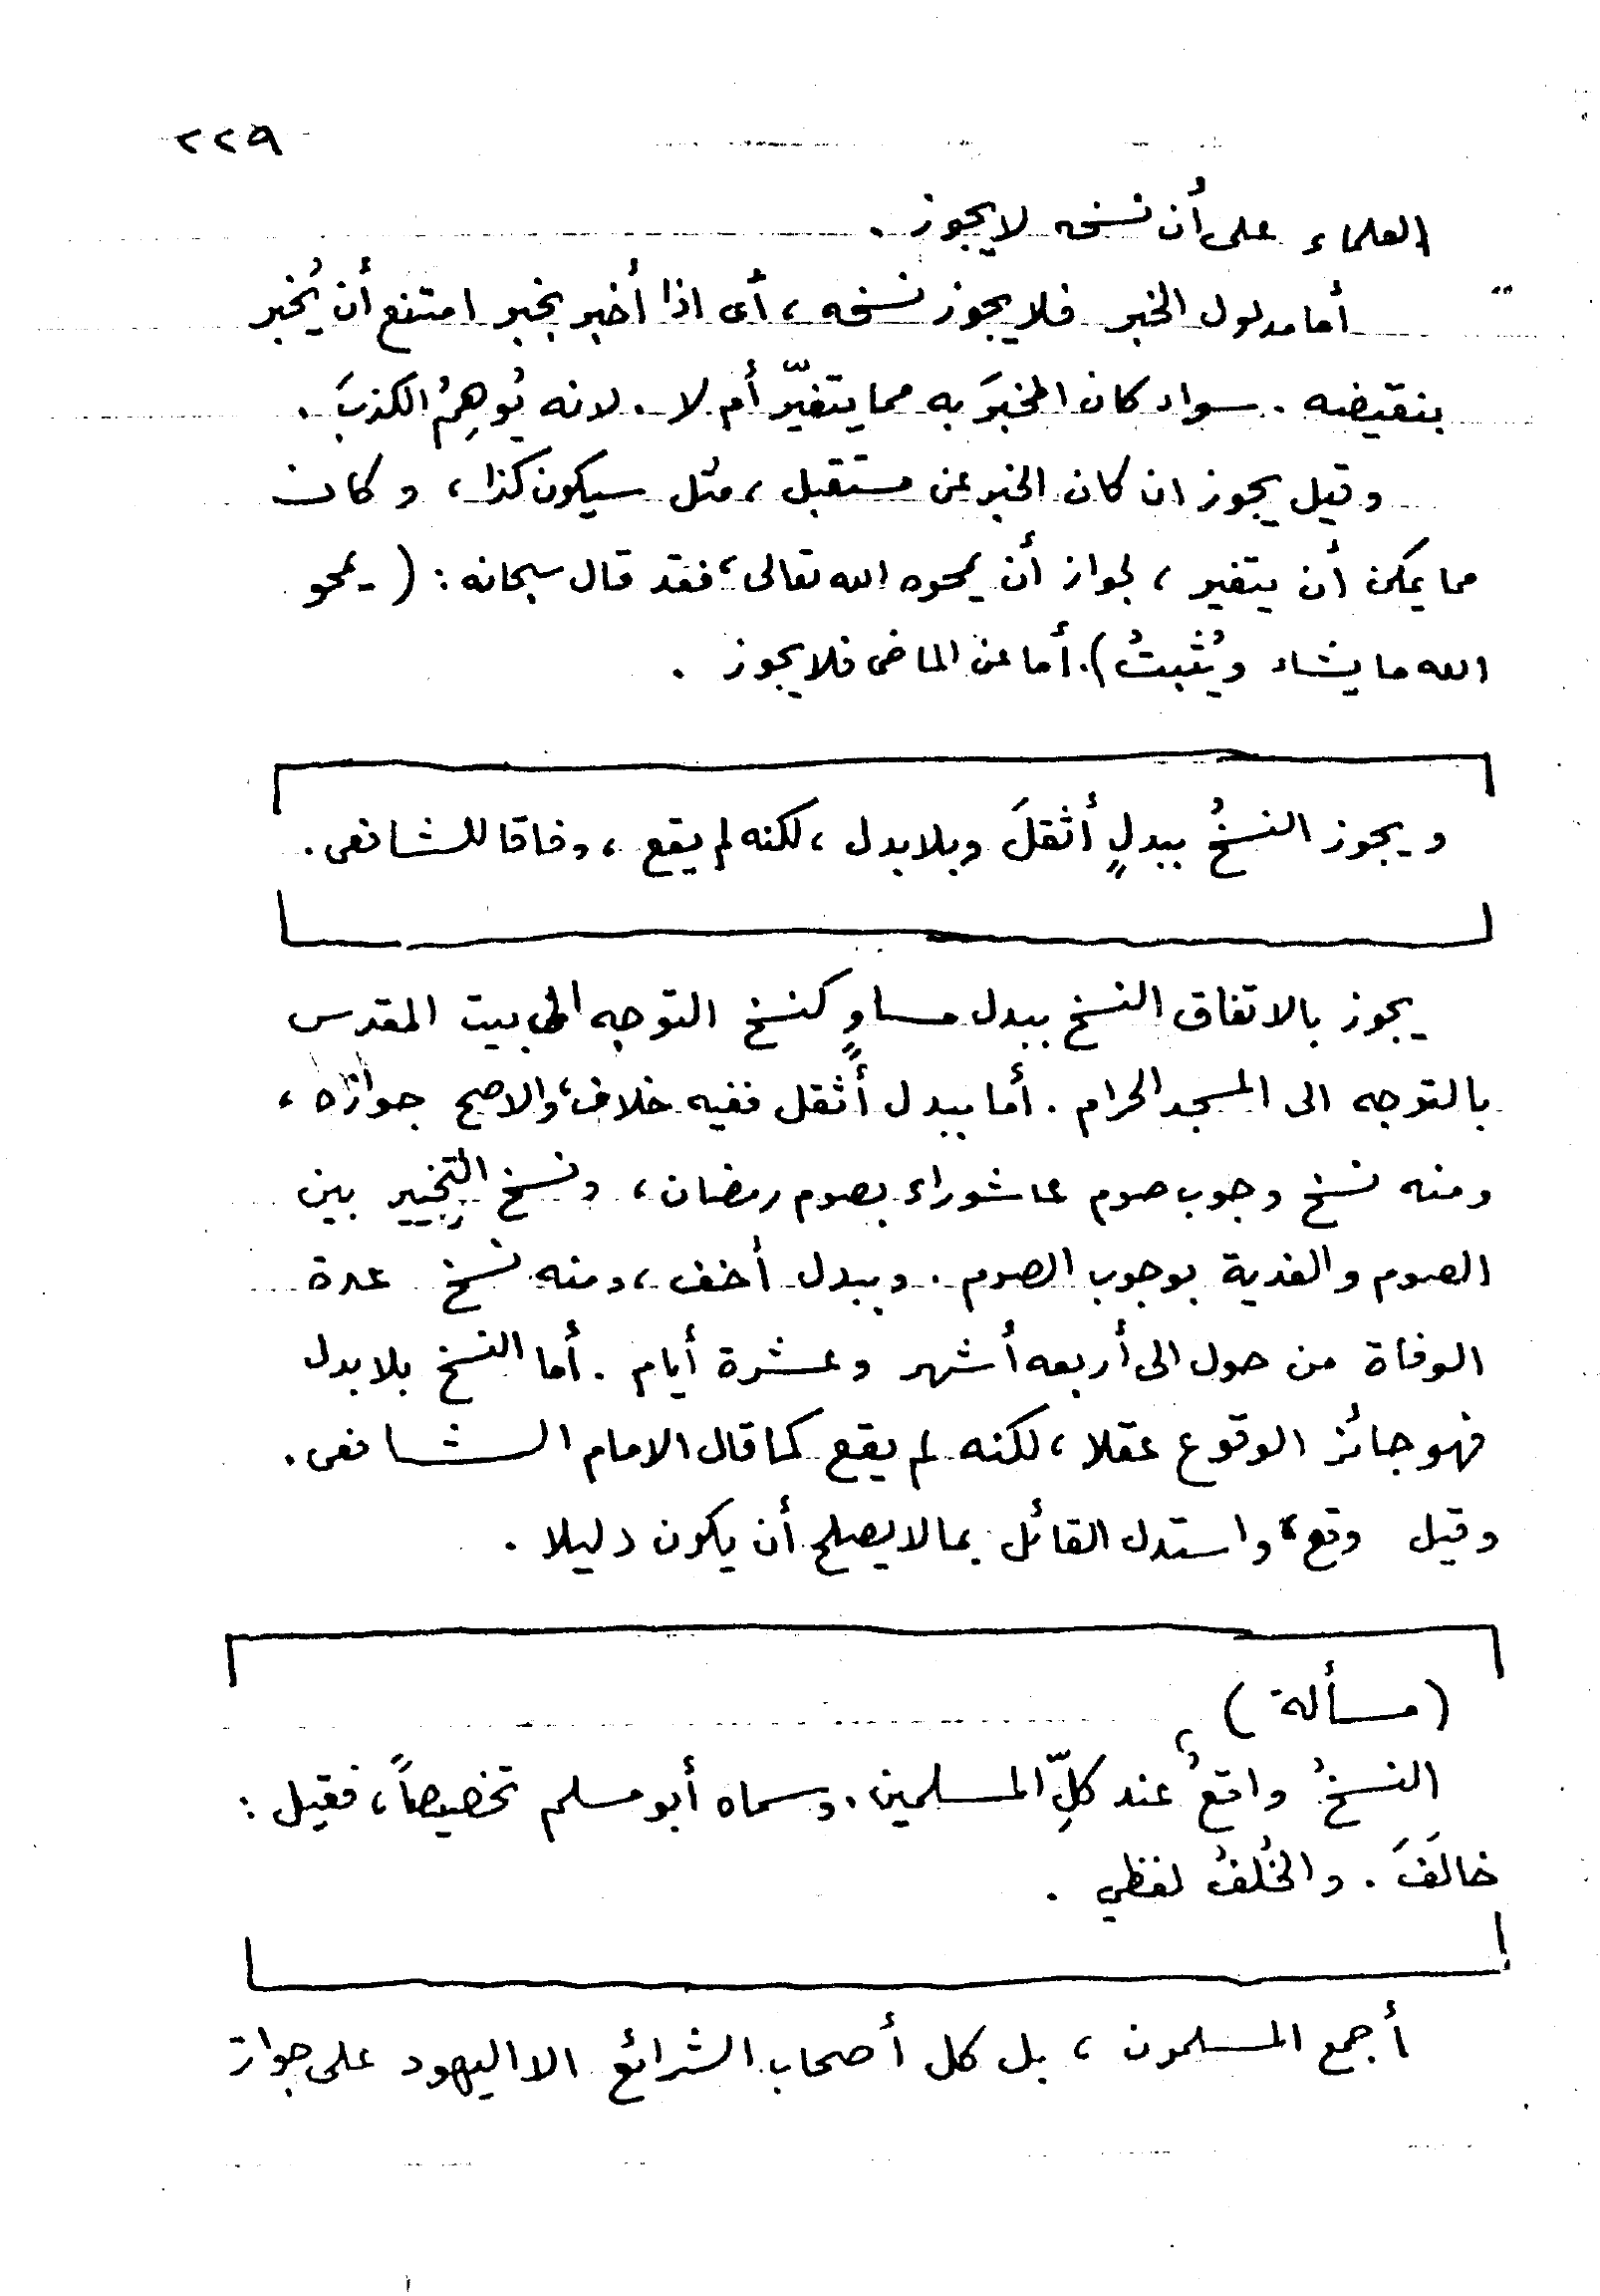 ٢٢٩
العلماء على أن نسخه لا يجوز .
أما مدلول الخبر فلا يجوز نسخه ، أى اذا أُخبِر بخبر امتنع أن يُخبر
بنقيضه . سواء كان المخبَر به مما يتغيّر أم لا . لانه يُوهِمُ الكذبَ .
وقيل يجوز ان كان الخبر عن مستقبل ، مثل سيكون كذا ، وكان
مما يمكن أن يتغير ، لجواز أن يمحوه الله تعالى ، فقد قال سبحانه : ( يمحو
الله ما يشاء ويُثبتُ ) . أما عن الماضى فلا يجوز .
ويجوز النسخُ ببدلٍ أثقلَ وبلا بدل ، لكنه لم يقع ، وفاقا للشافعى .
يجوز بالاتفاق النسخ ببدل مساوٍ كنسخ التوجه الى بيت المقدس
بالتوجه الى المسجد الحرام . أما ببدل أثقل ففيه خلاف ، والاصح جوازه ،
ومنه نسخ وجوب صوم عاشوراء بصوم رمضان ، ونسخ التخيير بين
الصوم والفدية بوجوب الصوم . وببدل أخف ، ومنه نسخ عدة
الوفاة من حول الى أربعه أشهر وعشرة أيام . أما النسخ بلا بدل
فهو جائز الوقوع عقلا ، لكنه لم يقع كما قال الامام الشافعى .
وقيل وقع ، واستدل القائل بما لا يصلح أن يكون دليلا .
( مسألة )
النسخُ واقعٌ عند كلِّ المسلمين . وسماه أبو مسلم تخصيصاً ، فقيل :
خالَفَ . والخُلفُ لفظي .
أجمع المسلمون ، بل كل أصحاب الشرائع الا اليهود على جواز